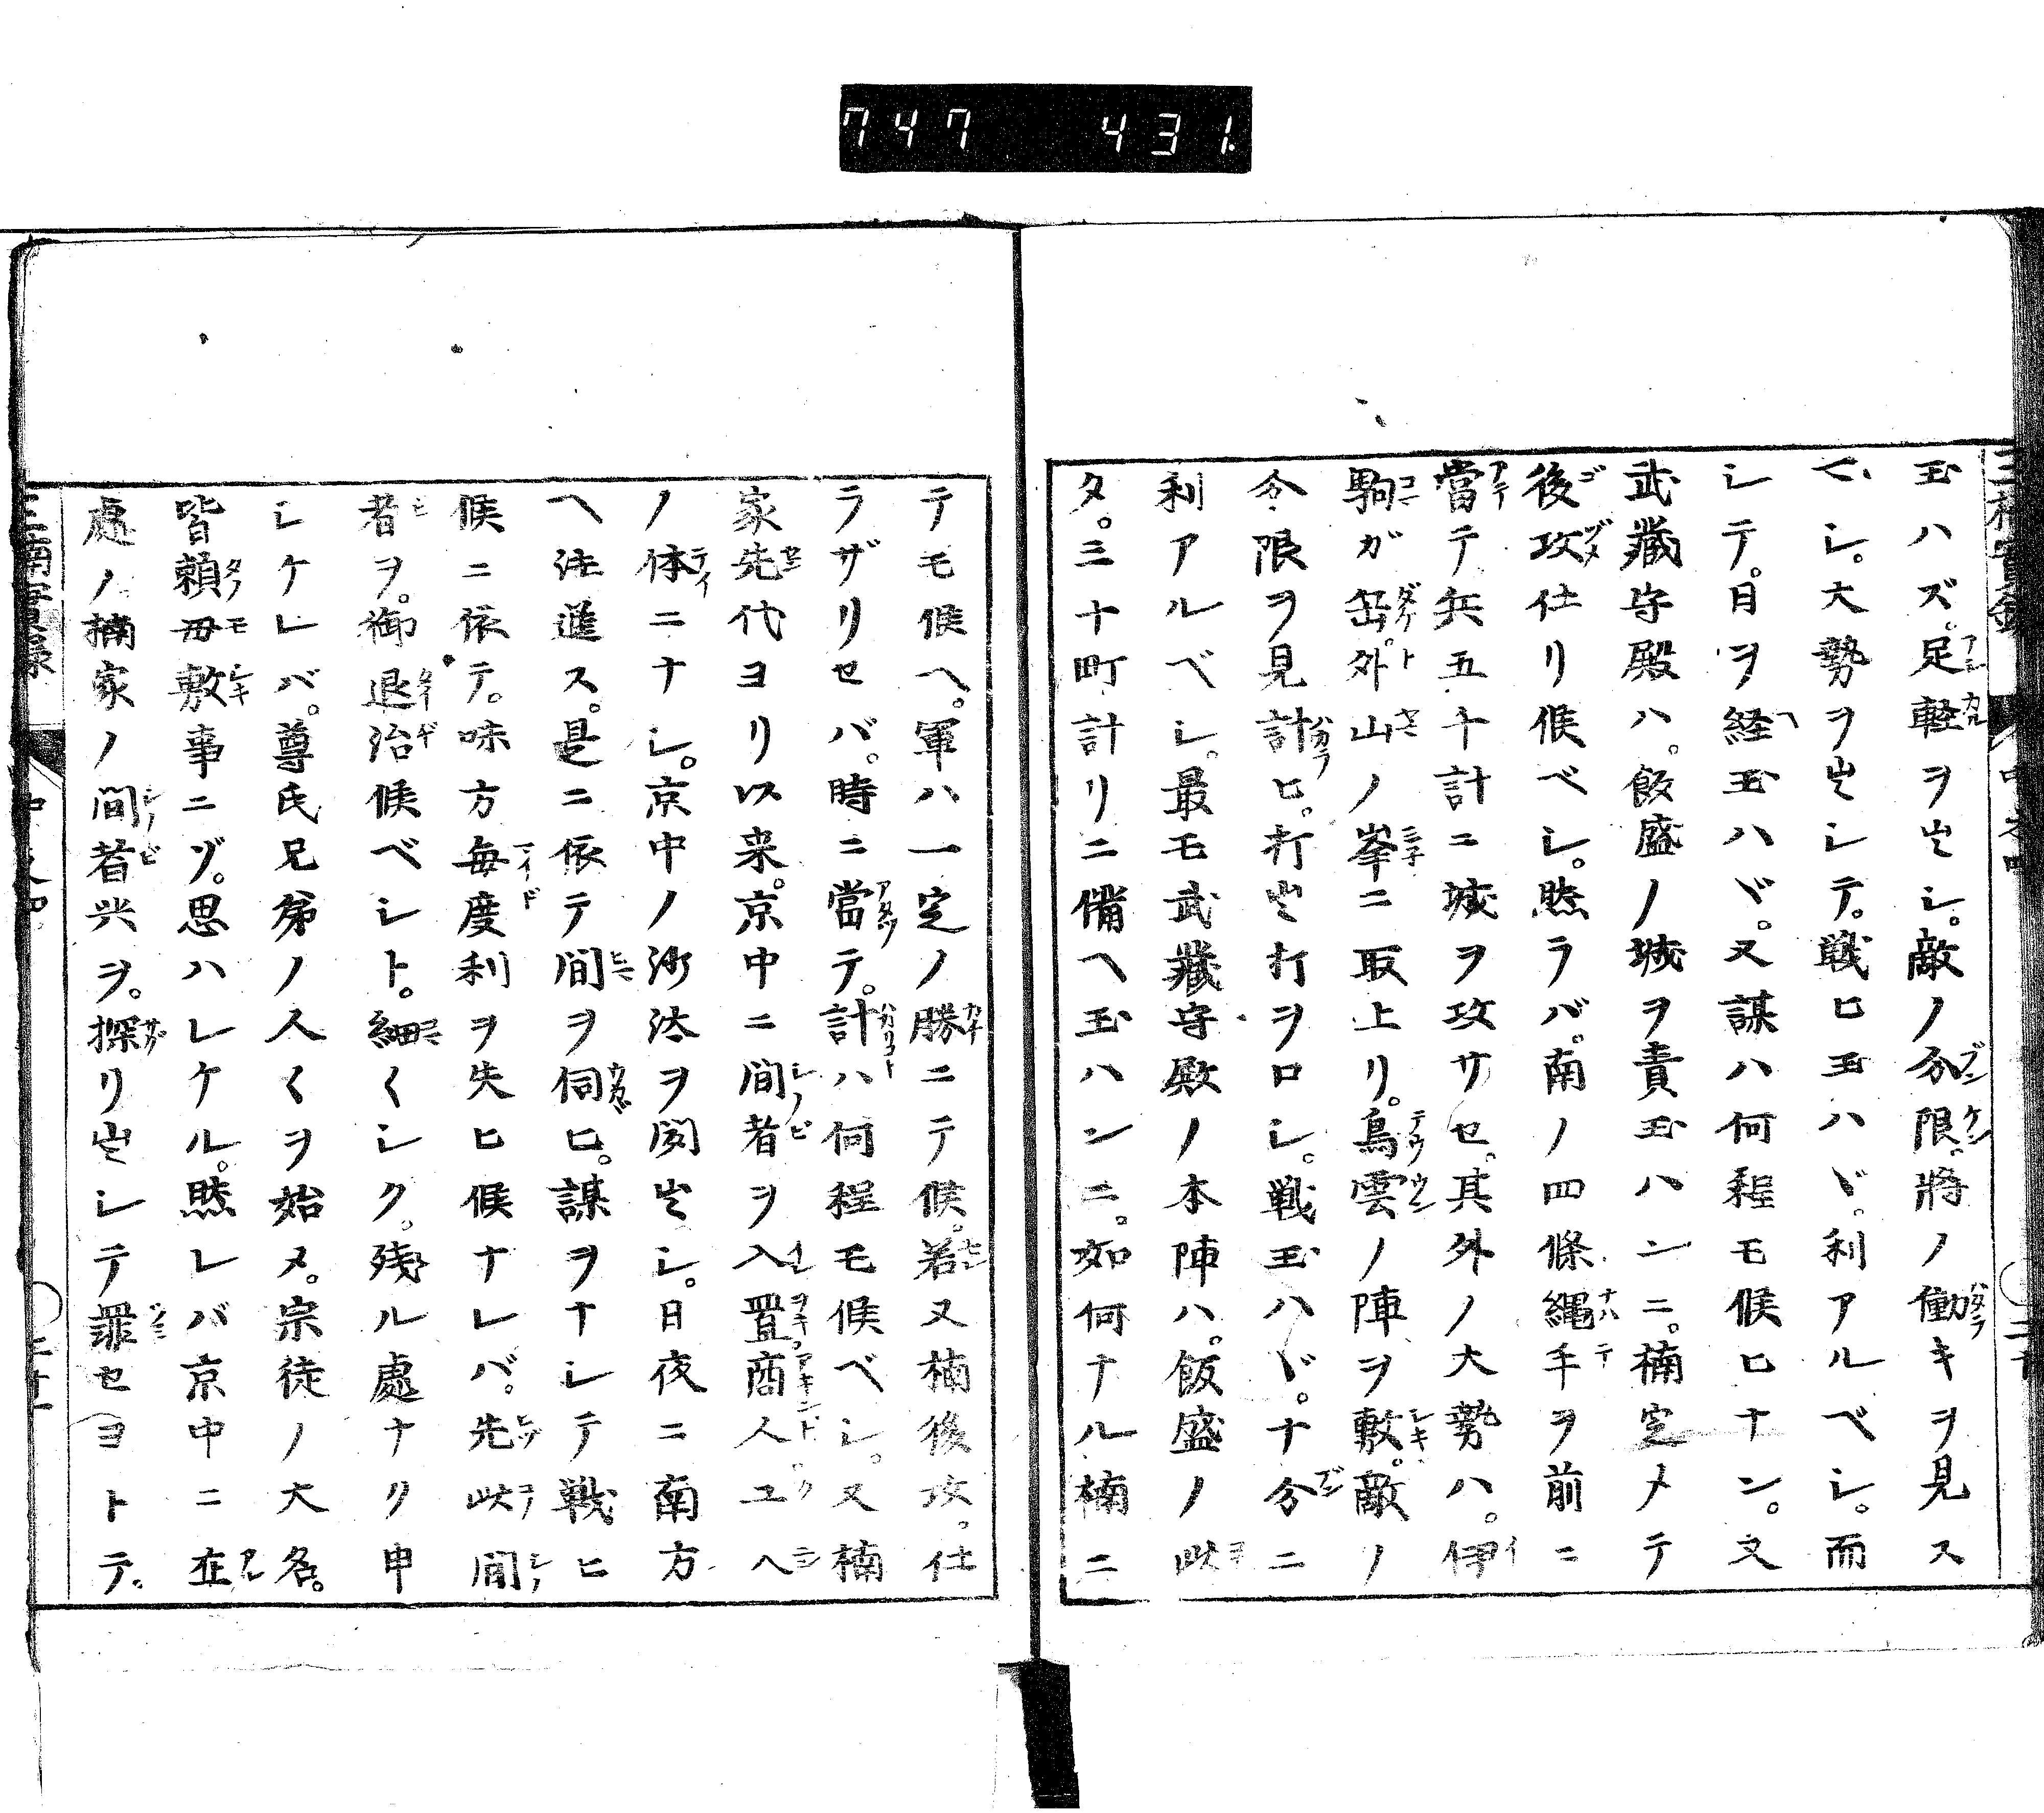 747 431
玉ハズ。足軽ヲ出シ。敵ノ分限。將ノ働キヲ見ス
ベシ。大勢ヲ出シテ。戦ヒ玉ハヾ。利アルベシ。而
シテ。日ヲ経玉ハヾ。又謀ハ何程モ候ヒナン。又
武藏守殿ハ。飯盛ノ城ヲ責玉ハンニ。楠定メテ
後攻仕リ候ベシ。然ラバ。南ノ四條縄手ヲ前ニ
當テ兵五十計ニ城ヲ攻サセ。其外ノ大勢ハ。伊
駒ガ嵩。外山ノ峯ニ取上リ。鳥雲ノ陣ヲ敷。敵ノ
分限ヲ見計ヒ。打出打ヲロシ。戦玉ハヾ。ナ分ニ
利アルベシ。最モ武藏守殿ノ本陣ハ。飯盛ノ此
タ。三十町計リニ備ヘ玉ハンニ。如何ナル楠ニ
テモ候ヘ。軍ハ一定ノ勝ニテ候。若又楠後攻。仕
ラザリセバ。時ニ當テ。計ハ何程モ候ベシ。又楠
家先代ヨリ以来。京中ニ間者ヲ入置。商人ユヘ
ノ体ニナシ。京中ノ沙汰ヲ聞出シ。日夜ニ南方
ヘ注進ス。是ニ依テ間ヲ伺ヒ。謀ヲナシテ戦ヒ
候ニ依テ。味方毎度利ヲ失ヒ候ナレバ。先此間
者ヲ。御退治候ベシト。細〱シク。残ル處ナリ申
シケレバ。尊氏兄弟ノ人〱ヲ始メ。宗徒ノ大名。
皆頼毋敷事ニゾ。思ハレケル。然レバ京中ニ在
處ノ楠家ノ間者共ヲ。探リ出シテ罪セヨトテ。